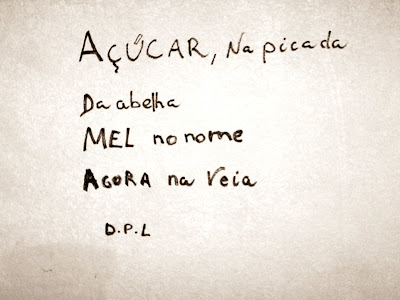 AÇÚCAR, Na picada
Da abelha
MEL no nome
AGORA na Veia
D.P.L